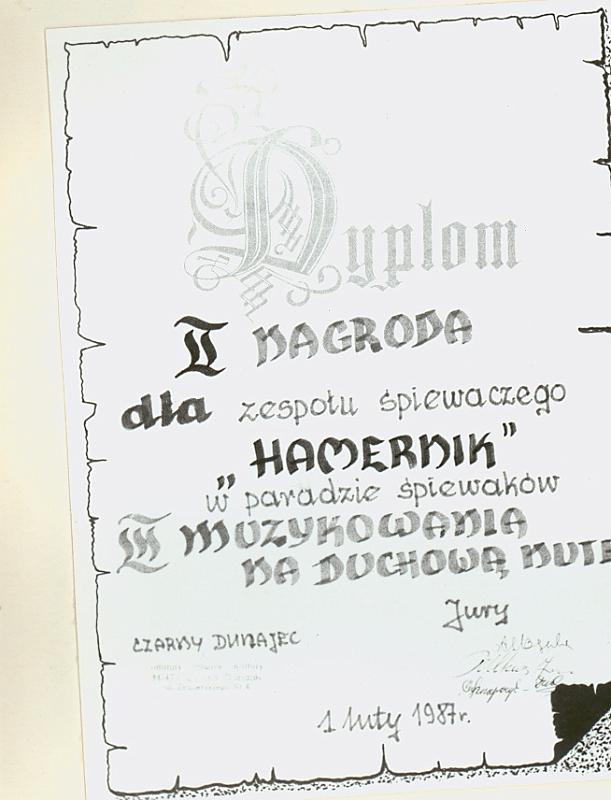 Dyplom
II NAGRODA
dla zespołu śpiewaczego
„HAMERNIK”
w paradzie śpiewaków
III MUZYKOWANIA
NA DUCHOWĄ NUTE
Jury
CZARNY DUNAJEC
1 luty 1987r.